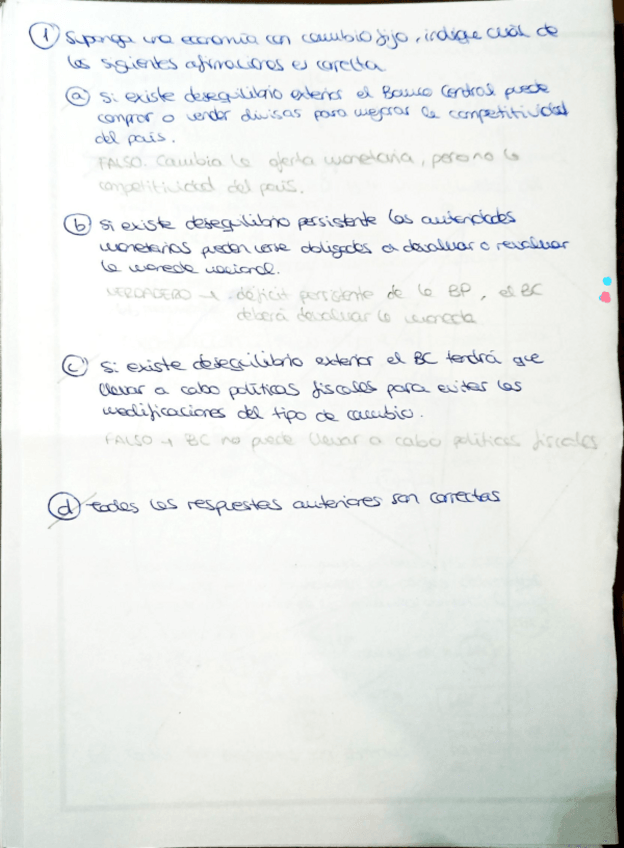 ① Suponga una economía con cambio fijo, indique cuál de
las siguientes afirmaciones es correcta
ⓐ Si existe desequilibrio exterior el Banco Central puede
comprar o vender divisas para mejorar la competitividad
del país.
FALSO. Cambia la oferta monetaria, pero no la
competitividad del país.
ⓑ Si existe desequilibrio persistente las autoridades
monetarias pueden verse obligadas a devaluar o revaluar
la moneda nacional.
VERDADERO → déficit persistente de la BP, el BC
deberá devaluar la moneda
ⓒ Si existe desequilibrio exterior el BC tendrá que
llevar a cabo políticas fiscales para evitar las
modificaciones del tipo de cambio.
FALSO → BC no puede llevar a cabo políticas fiscales
ⓓ todas las respuestas anteriores son correctas